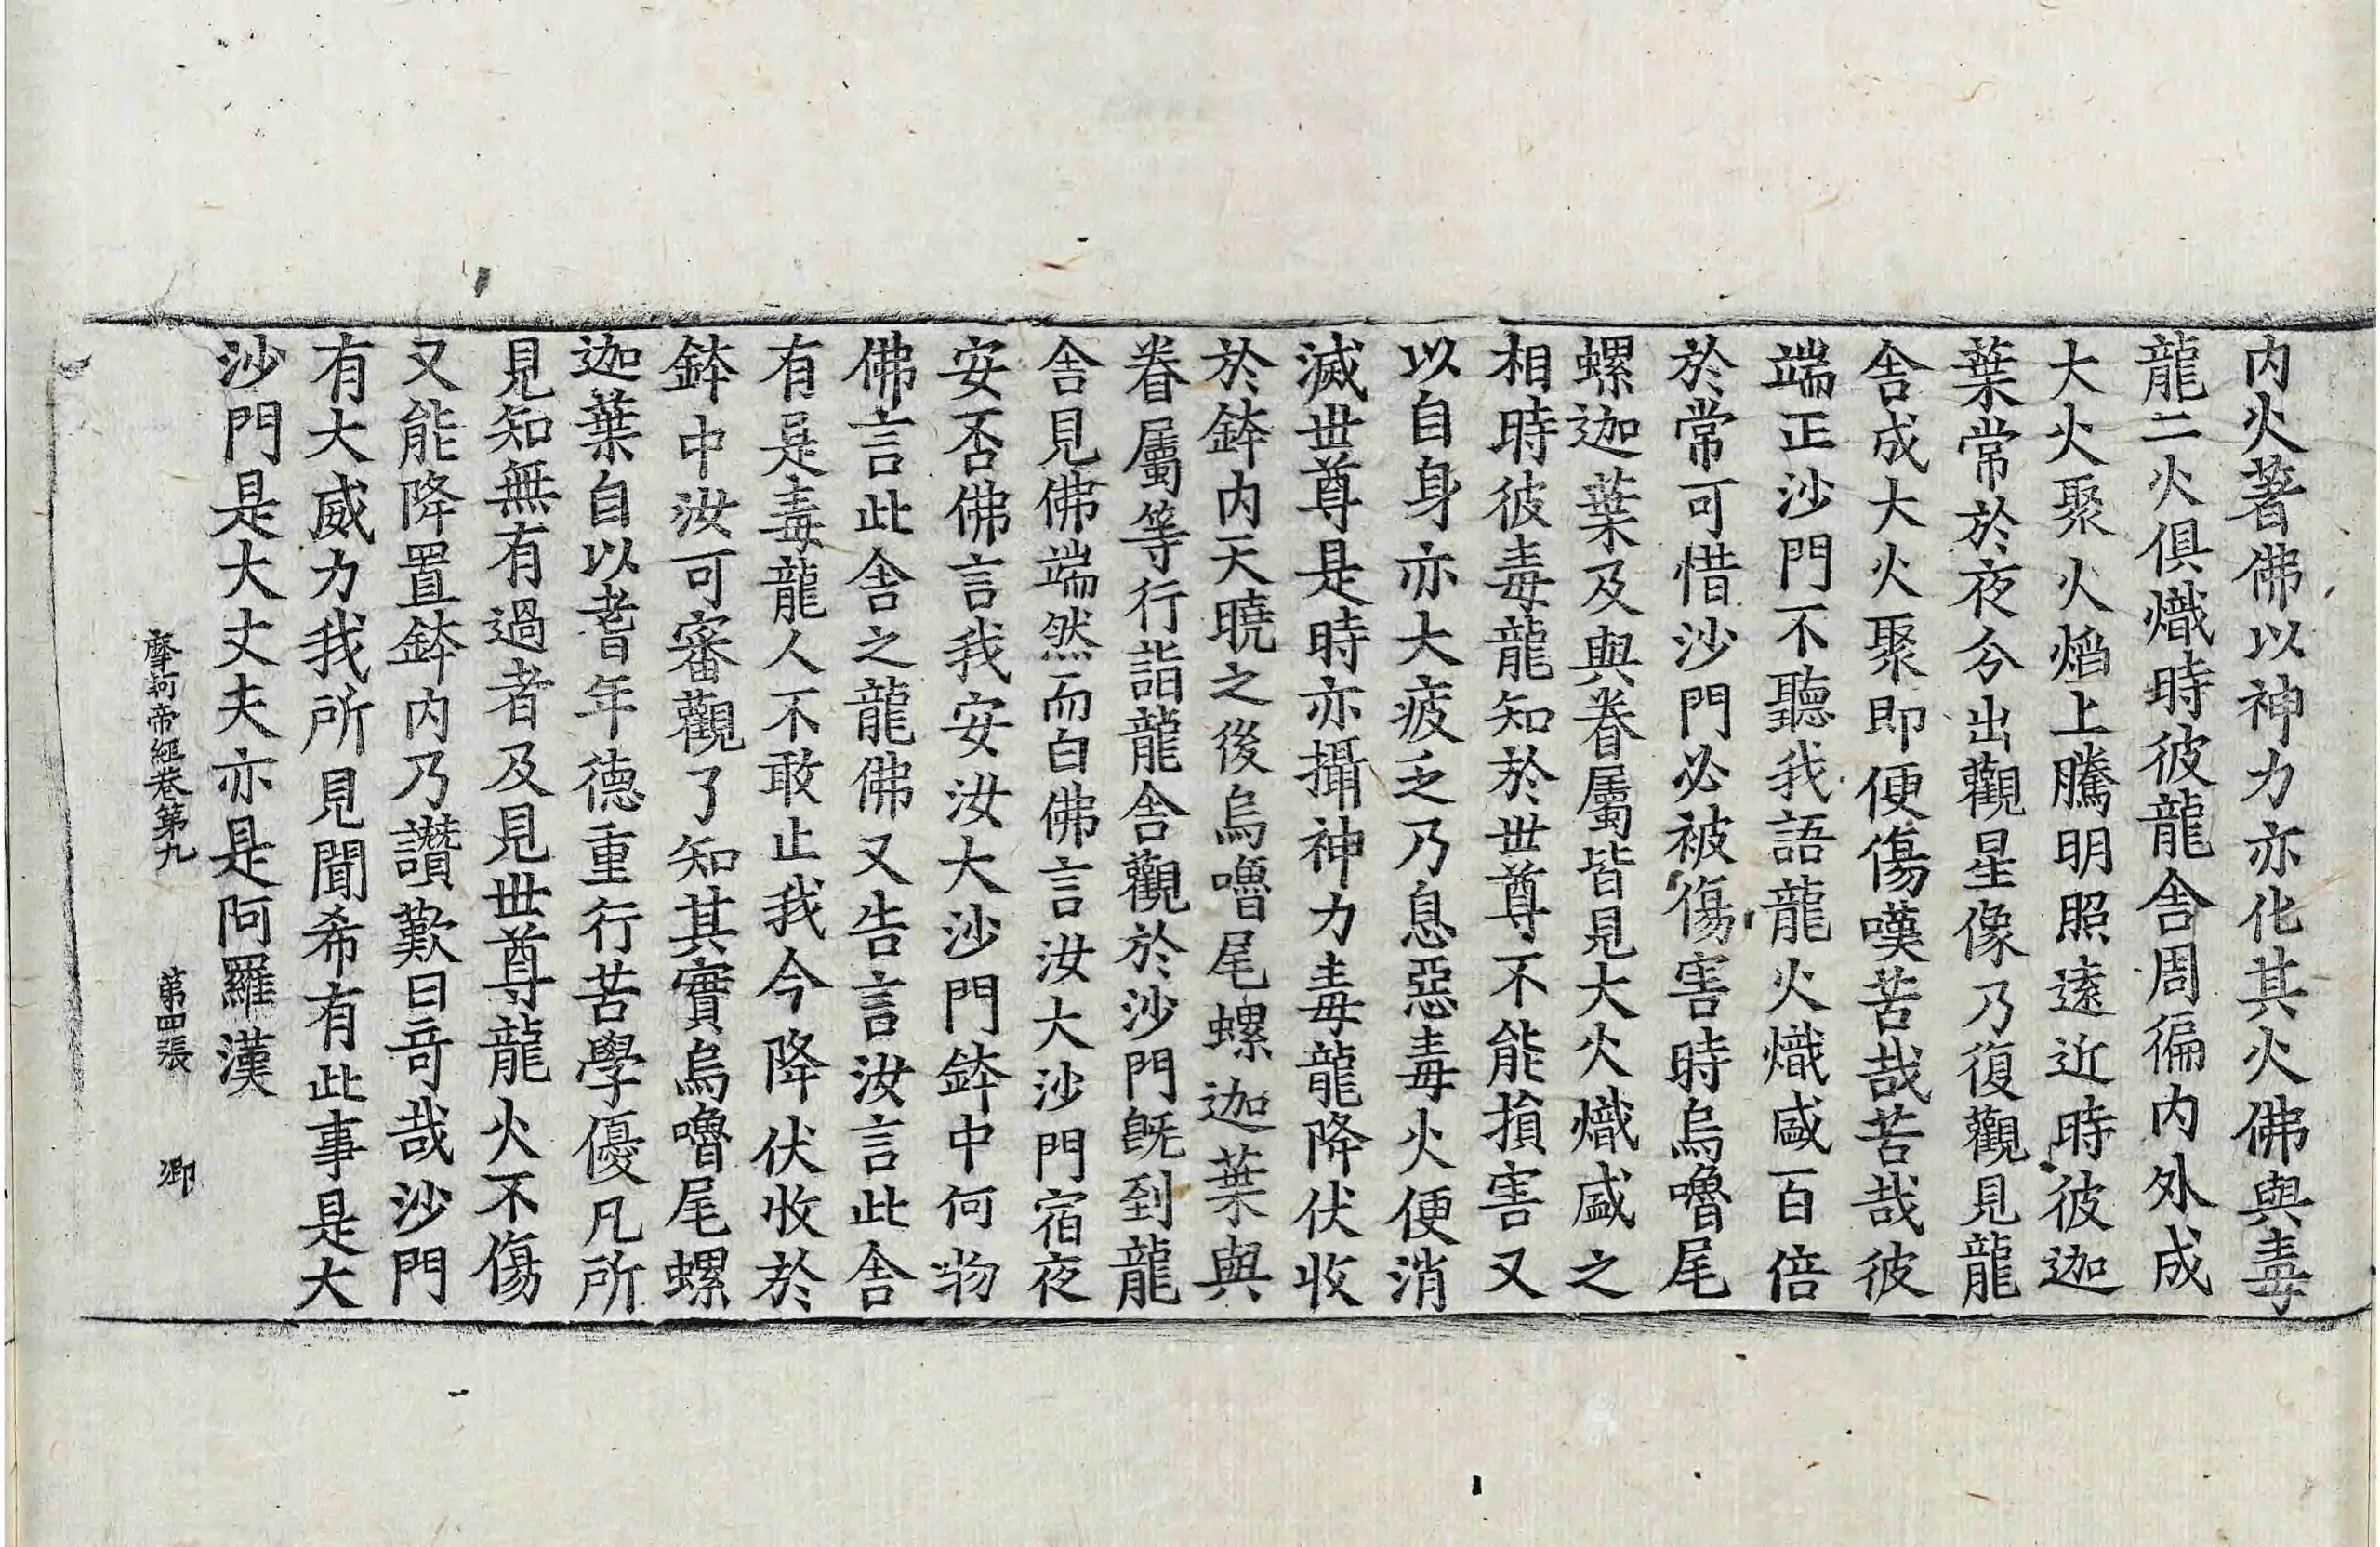 内火著佛以神力亦化其火佛與毒
龍二火俱熾時彼龍舎周徧内外成
大火聚火焰上騰明照遠近時彼迦
葉常於夜分出觀星像乃復觀見龍
舎成大火聚即便傷嘆苦哉苦哉彼
端正沙門不聽我語龍火熾盛百倍
於常可惜沙門必被傷害時烏嚕尾
螺迦葉及與眷屬皆見大火熾盛之
相時彼毒龍知於世尊不能損害又
以自身亦大疲乏乃息惡毒火便消
滅世尊是時亦攝神力毒龍降伏收
於鉢内天曉之後烏嚕尾螺迦葉與
眷屬等行詣龍舎觀於沙門旣到龍
舎見佛端然而白佛言汝大沙門宿夜
安否佛言我安汝大沙門鉢中何物
佛言此舎之龍佛又告言汝言此舎
有是毒龍人不敢止我今降伏收於
鉢中汝可審觀了知其實烏嚕尾螺
迦葉自以耆年德重行苦學優凡所
見知無有過者及見世尊龍火不傷
又能降置鉢内乃讚歎曰奇哉沙門
有大威力我所見聞希有此事是大
沙門是大丈夫亦是阿羅漢
摩訶帝經卷第九 第四張 卿